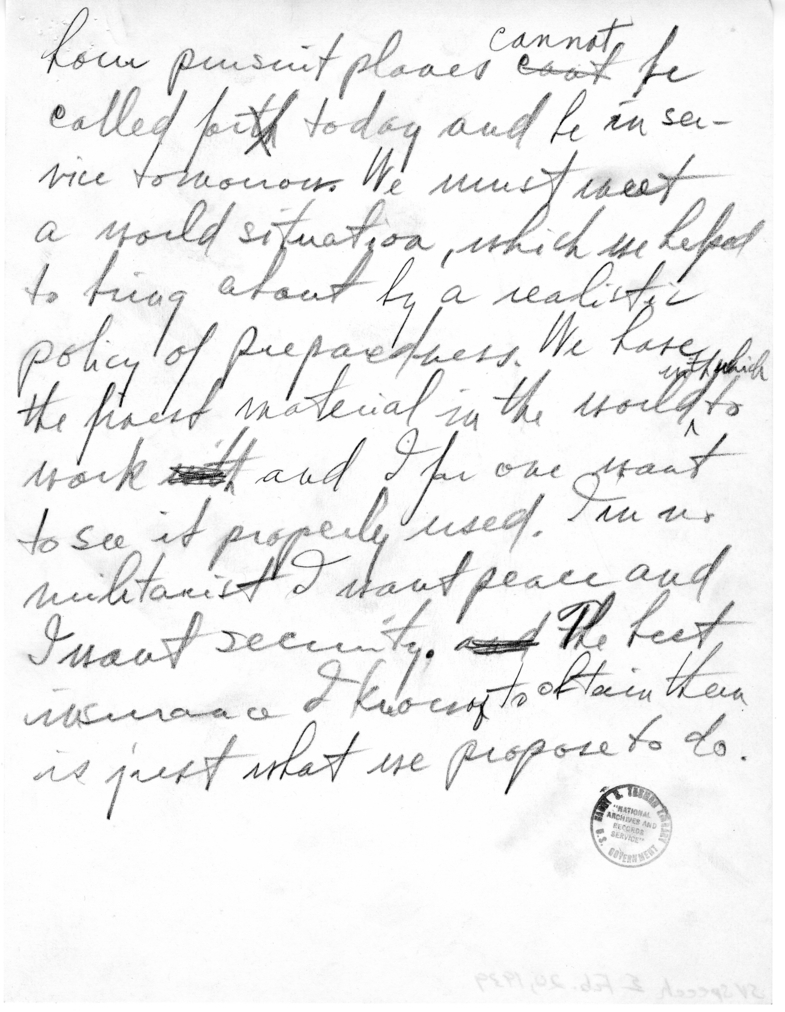 hour pursuit planes cannot ~~can't~~ be
called for~~th~~ today and be in ser-
vice tomorrow. We must meet
a world situation, which we helped
to bring about by a realistic
policy of preparedness. We have
the finest material in the world ^ with which to
work ~~with~~ and I for one want
to see it properly used. I'm no
militarist I want peace and
I want security. ~~and~~ The best
insurance I know of to obtain them
is just what we propose to do.
HARRY S. TRUMAN LIBRARY
"NATIONAL
ARCHIVES AND
RECORDS
SERVICE"
U.S. GOVERNMENT
SV Speech Feb. 20, 1939